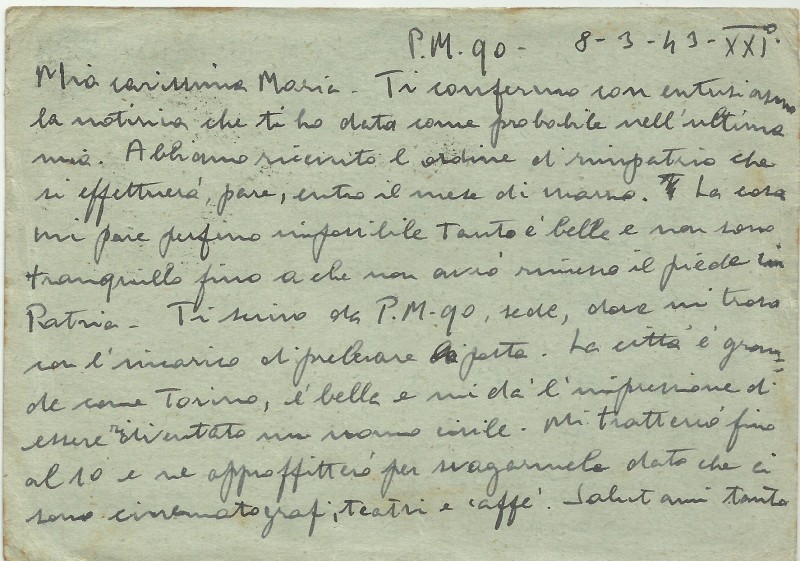 P.M. 90 - 8-3-43-XXI°.
Mia carissima Maria - Ti confermo con entusiasmo
la notizia che ti ho data come probabile nell'ultima
mia. Abbiamo ricevuto l'ordine di rimpatrio che
si effettuerà, pare, entro il mese di marzo. La cosa
mi pare perfino impossibile tanto è bella e non sono
tranquillo fino a che non avrò rimesso il piede in
Patria - Ti scrivo da P.M. 90, sede, dove mi trovo
con l'incarico di prelevare la posta. La città è gran=
de come Torino, è bella e mi dà l'impressione di
essere diventato un uomo civile. Mi tratterrò fino
al 10 e ne approffitterò per svagarmela dato che ci
sono cinematografi, teatri e caffè. Salutami tanto